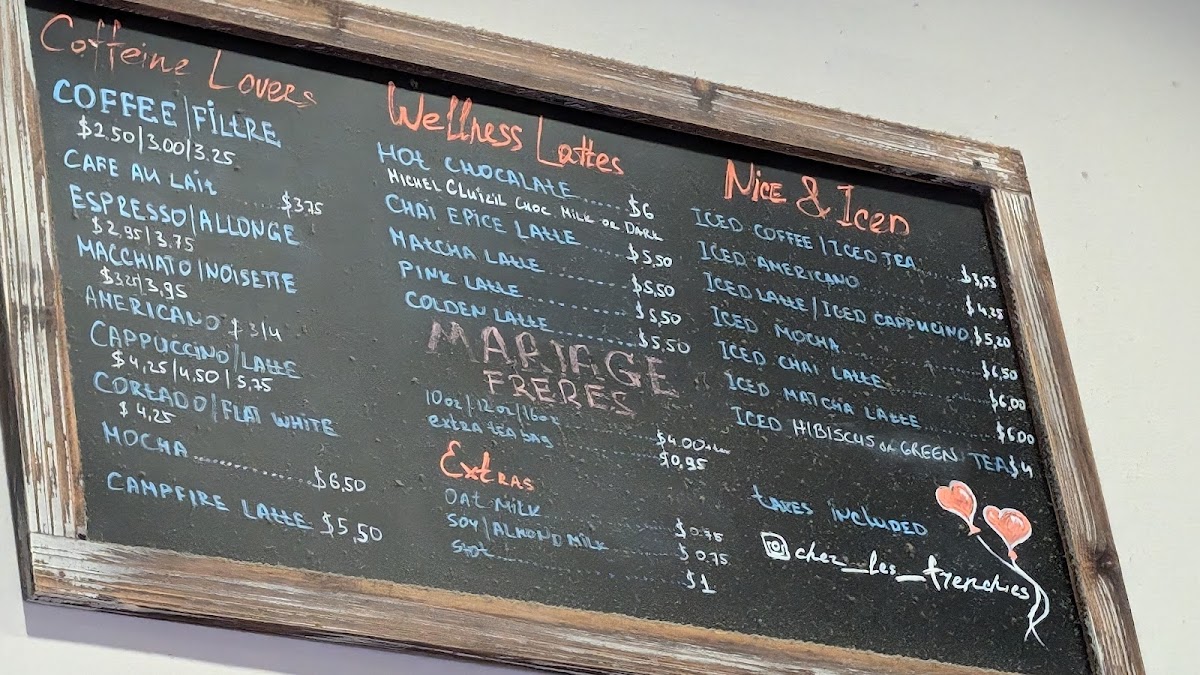 Caffeine Lovers
COFFEE/FILTRE
$2.50/3.00/3.25
CAFE AU LAIT ........ $3.75
ESPRESSO/ALLONGE
$2.95/3.75
MACCHIATO/NOISETTE
$3.25/3.95
AMERICANO $3/4
CAPPUCCINO/LATTE
$4,25/4.50/5,75
CORTADO/FLAT WHITE
$4,25
MOCHA ........ $6,50
CAMPFIRE LATTE $5,50
Wellness Lattes
HOT CHOCALATE ........ $6
MICHEL CLUIZIL CHOC MILK OR DARK
CHAI EPICE LATTE ........ $5,50
MATCHA LATTE ........ $5,50
PINK LATTE ........ $5,50
COLDEN LATTE ........ $5,50
MARIAGE
FRERES
10oz/12oz/16oz ........ $4.00
extra tea bag ........ $0,95
Extras
OAT MILK ........ $0.75
SOY/ALMOND MILK ........ $0.75
SHOT ........ $1
NICE & ICED
ICED COFFEE/ICED TEA ........ $3,55
ICED AMERICANO ........ $4.25
ICED LATTE/ICED CAPPUCINO $5,20
ICED MOCHA ........ $6,50
ICED CHAI LATTE ........ $6,00
ICED MATCHA LATTE ........ $6,00
ICED HIBISCUS OR GREEN TEA $4
taxes included
chez_les_frenchies